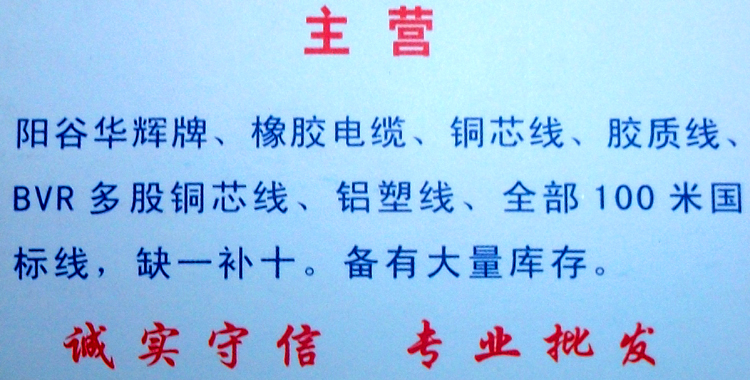 主营
阳谷华辉牌、橡胶电缆、铜芯线、胶质线、
BVR多股铜芯线、铝塑线、全部100米国
标线，缺一补十。备有大量库存。
诚实守信 专业批发